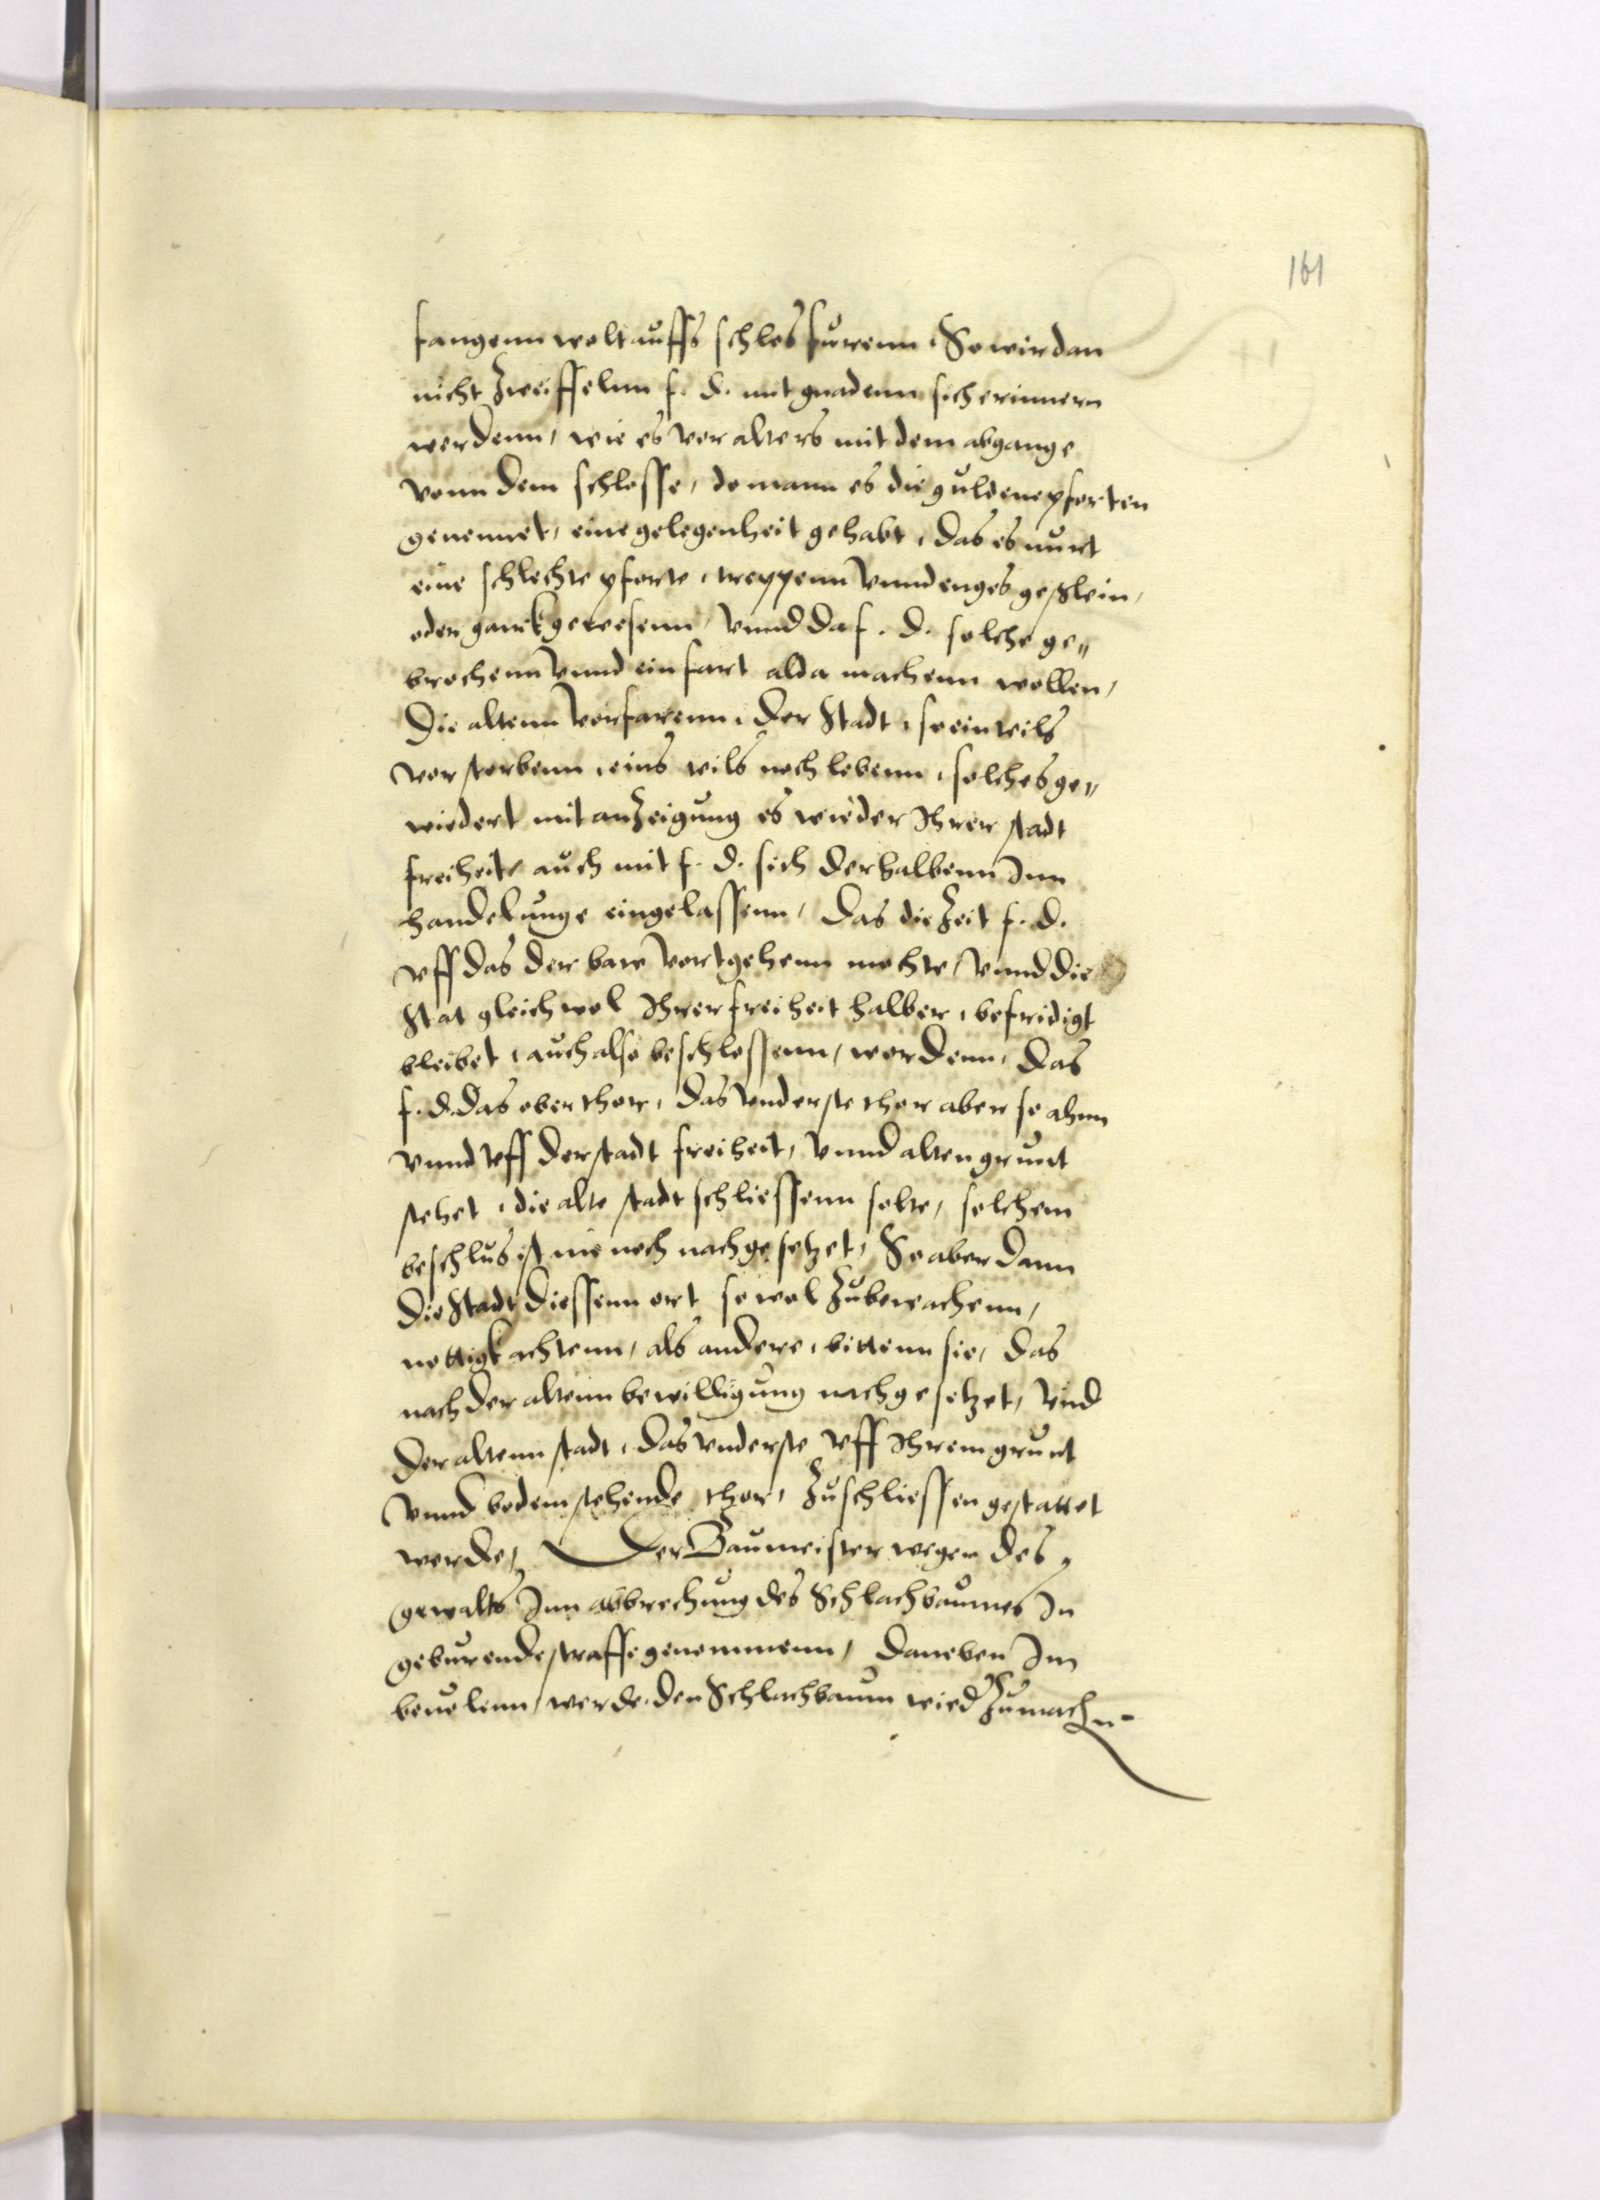 161
fangenn wolt auffs schlos furenn, So wir dan
nicht Zweiffelnn f. d. mit gnadenn sich erinnern
werdenn, wie es vor alters mit dem abgange
vonn dem schlosse, do mann es die guldene pforten
genennet, eine gelegenheit gehabt, das es nurt
eine schlechte pforte, treppenn vnnd enges geßlein,
oder ganck gewesenn, vnnd da f. d. solche ge„
brochenn vnnd ein fart alda machenn wollen,
Die altenn vorfarenn, der Stadt, so ein teils
vorstorbenn, eins teils noch lebenn, solches ge„
wiedert mit anzeigung es wieder Ihrer stadt
freiheit, auch mit f. d. sich derhalbenn Inn
handelunge eingelassenn, das die Zeit f. d.
vff das der baw vortgehenn mochte, vnnd die
Stat gleichwol Ihrer freiheit halber, befridigt
bleibet, auch also beschlossenn, wordenn, das
f. d. das ober thor, das vnderste thor aber so ahnn
vnnd vff der stadt freiheit, vnnd alten grunt
stehet, die alte stadt schliessenn solte, solchem
beschlus ist nie noch nachgesetzet, So aber dann
die Stadt diessenn ort so wol Zubewachenn,
nottigk achtenn, als andere, bittenn sie, das
nach der altenn bewilligung nachgesetzet, vnd
der altenn stadt, das vnderste vff Ihrem grunt
vnnd bodem stehende thor, Zuschliessen gestattet
werde, Der Baumeister wegen des
gewalts Inn abbrechung des Schlachbaumes In
geburende straffe genommenn, daneben Im
beuolenn, werde den Schlachbaum wied Zumachn